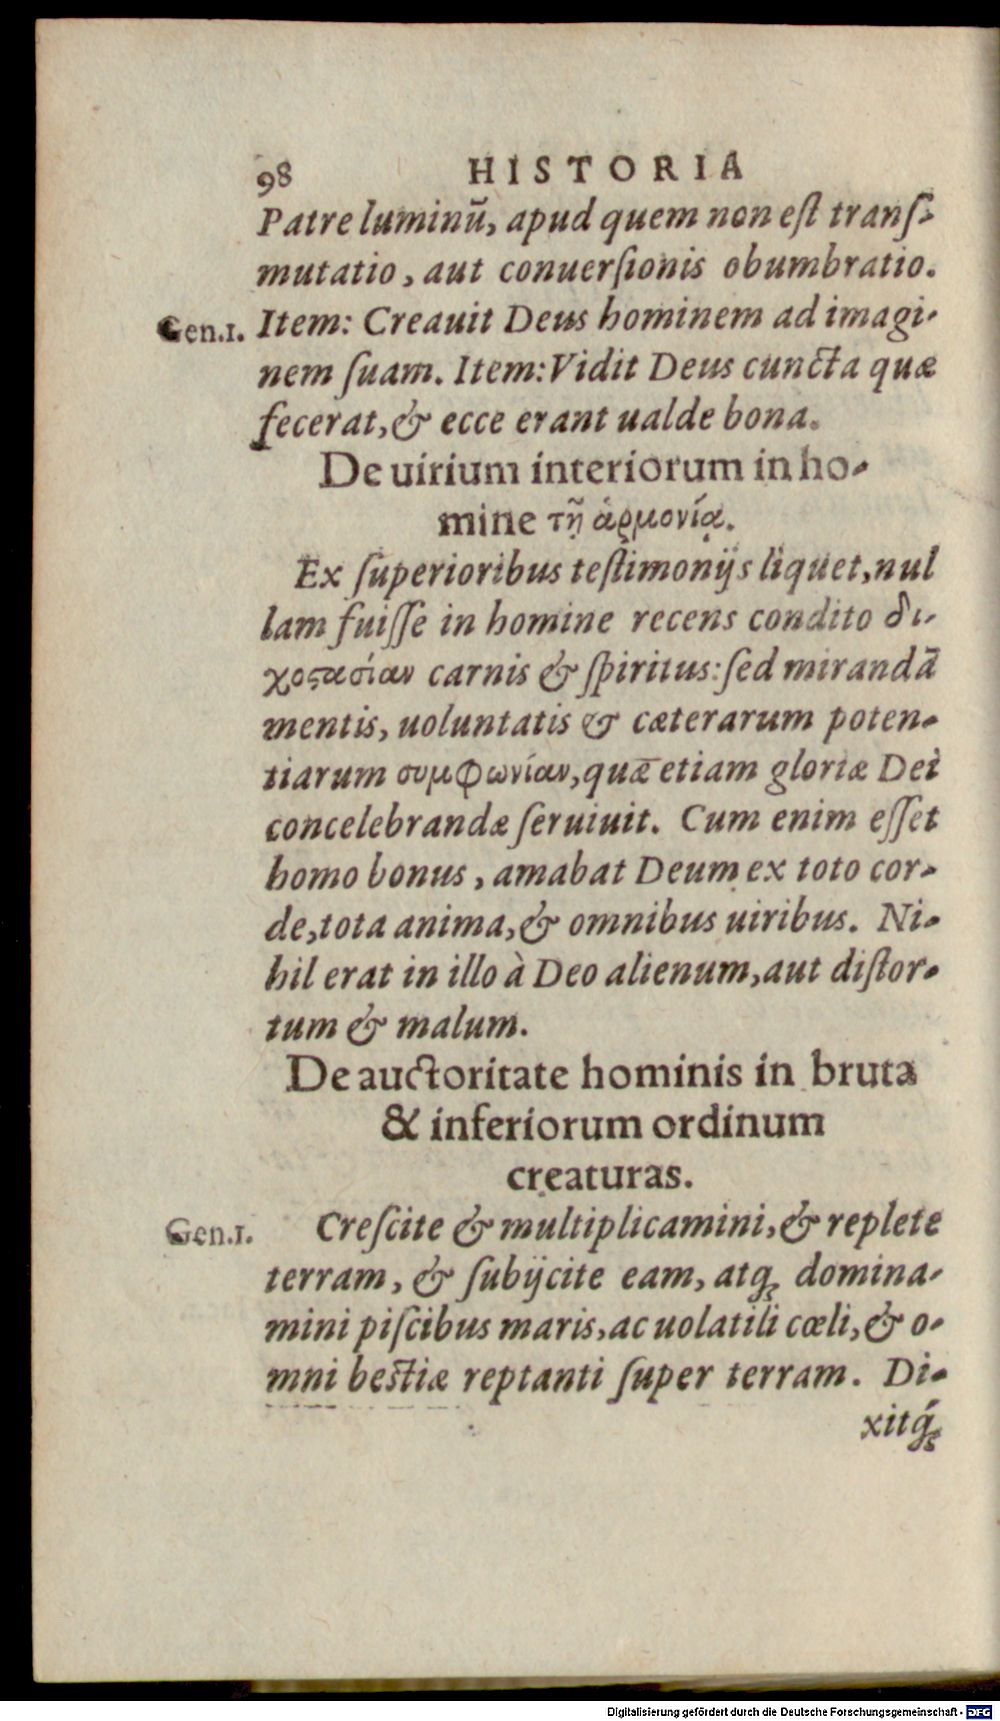 98 HISTORIA
Patre luminũ, apud quem non eſt tranſ-
mutatio, aut conuerſionis obumbratio.
Gen.1. Item: Creauit Deus hominem ad imagi-
nem ſuam. Item: Vidit Deus cuncta quæ
fecerat, & ecce erant ualde bona.
De uirium interiorum in ho-
mine τῇ ἁρμονίᾳ.
Ex ſuperioribus teſtimonijs liquet, nul
lam fuiſſe in homine recens condito δι-
χοϛασίαν carnis & ſpiritus: ſed mirandã
mentis, uoluntatis & cæterarum poten-
tiarum συμφωνίαν, quæ etiam gloriæ Dei
concelebrandæ ſeruiuit. Cum enim eſſet
homo bonus, amabat Deum ex toto cor-
de, tota anima, & omnibus uiribus. Ni-
hil erat in illo à Deo alienum, aut diſtor-
tum & malum.
De auctoritate hominis in bruta
& inferiorum ordinum
creaturas.
Gen.1. Creſcite & multiplicamini, & replete
terram, & ſubijcite eam, atq́ꝫ domina-
mini piſcibus maris, ac uolatili cœli, & o-
mni beſtiæ reptanti ſuper terram. Di-
xitq́ꝫ
Digitalisierung gefördert durch die Deutsche Forschungsgemeinschaft - DFG